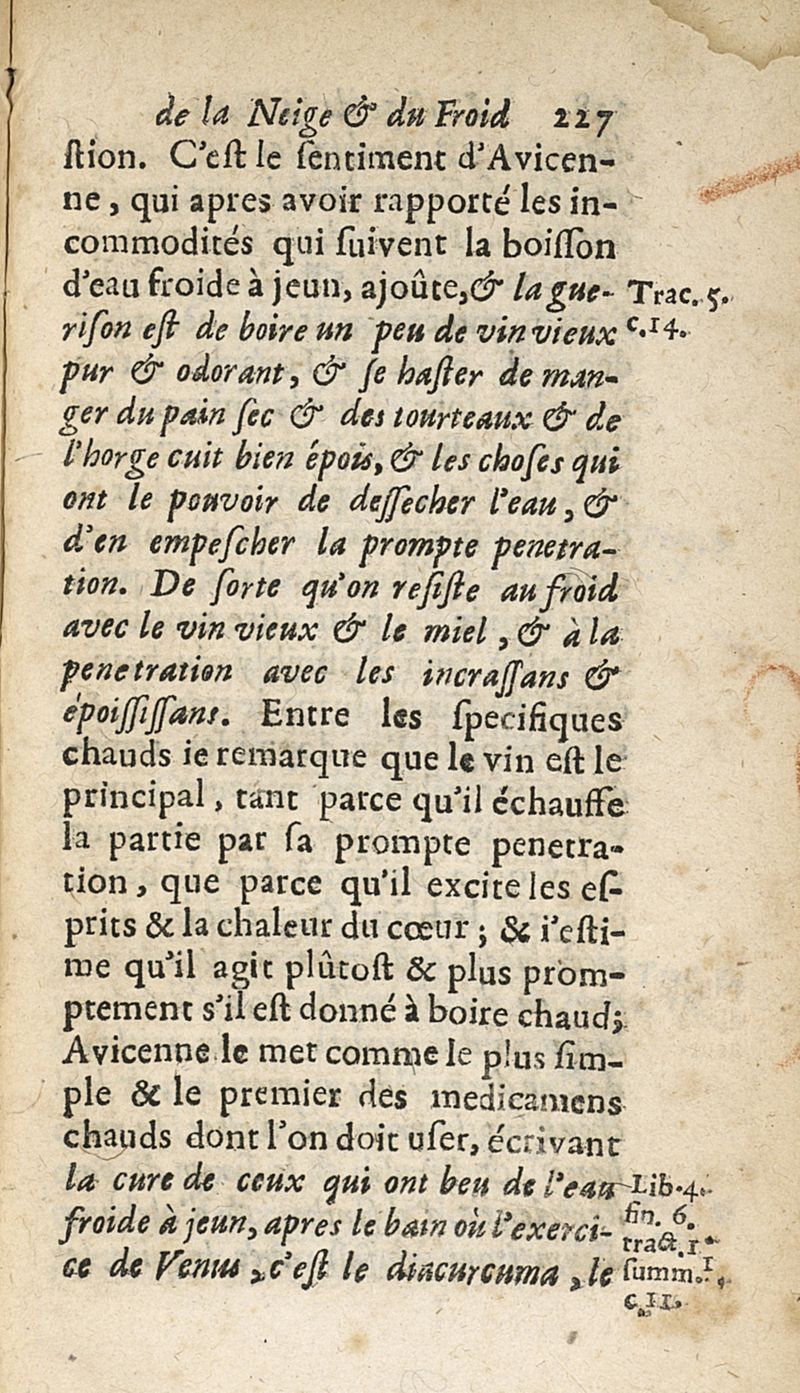 de la Neige & du Froid 227
ſtion. C'eſt le ſentiment d'Avicen-
ne, qui apres avoir rapporté les in-
commodités qui ſuivent la boiſſon
d'eau froide à jeun, ajoûte, & la gue-
Trac. 5.
riſon eſt de boire un peu de vin vieux
c. 14.
pur & odorant, & ſe haſter de man-
ger du pain ſec & des tourteaux & de
l'horge cuit bien épois, & les choſes qui
ont le pouvoir de deſſecher l'eau, &
d'en empeſcher la prompte penetra-
tion. De ſorte qu'on reſiſte au froid
avec le vin vieux & le miel, & à la
penetration avec les incraſſans &
époiſſiſſans. Entre les ſpecifiques
chauds ie remarque que le vin eſt le
principal, tant parce qu'il échauffe
la partie par ſa prompte penetra-
tion, que parce qu'il excite les eſ-
prits & la chaleur du cœur; & i'eſti-
me qu'il agit plûtoſt & plus prom-
ptement s'il eſt donné à boire chaud;
Avicenne le met comme le plus ſim-
ple & le premier des medicamens
chauds dont l'on doit uſer, écrivant
la cure de ceux qui ont beu de l'eau
Lib. 4.
froide à jeun, apres le bain où l'exerci-
fin. 6.
tract. 1.
ce de Venus, c'eſt le diacurcuma, le
ſumm. 1,
c. 11.